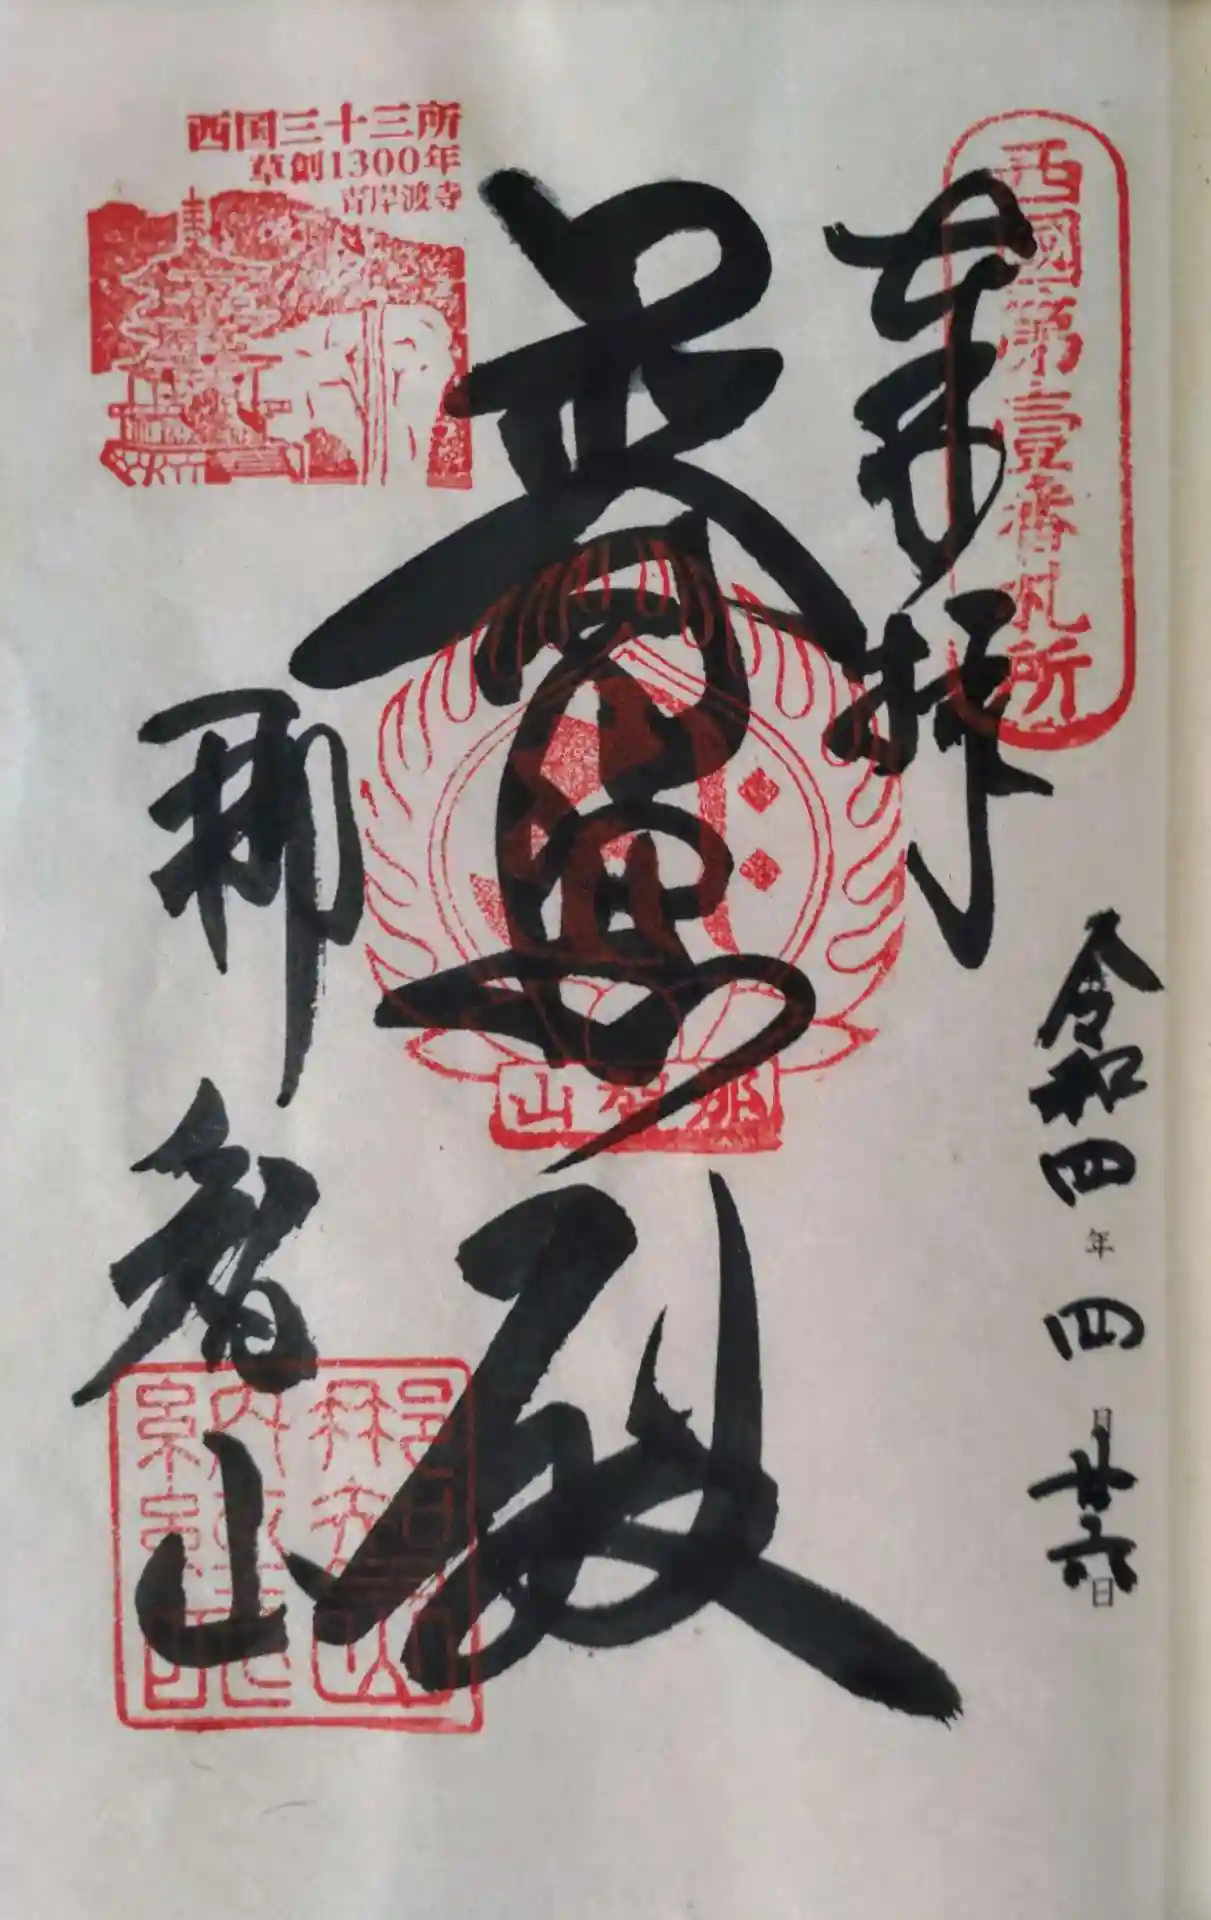 西國第壹番札所
奉拝
令和四年四月廿六日
普照殿
那智山
西国三十三所
草創1300年
青岸渡寺
那智山